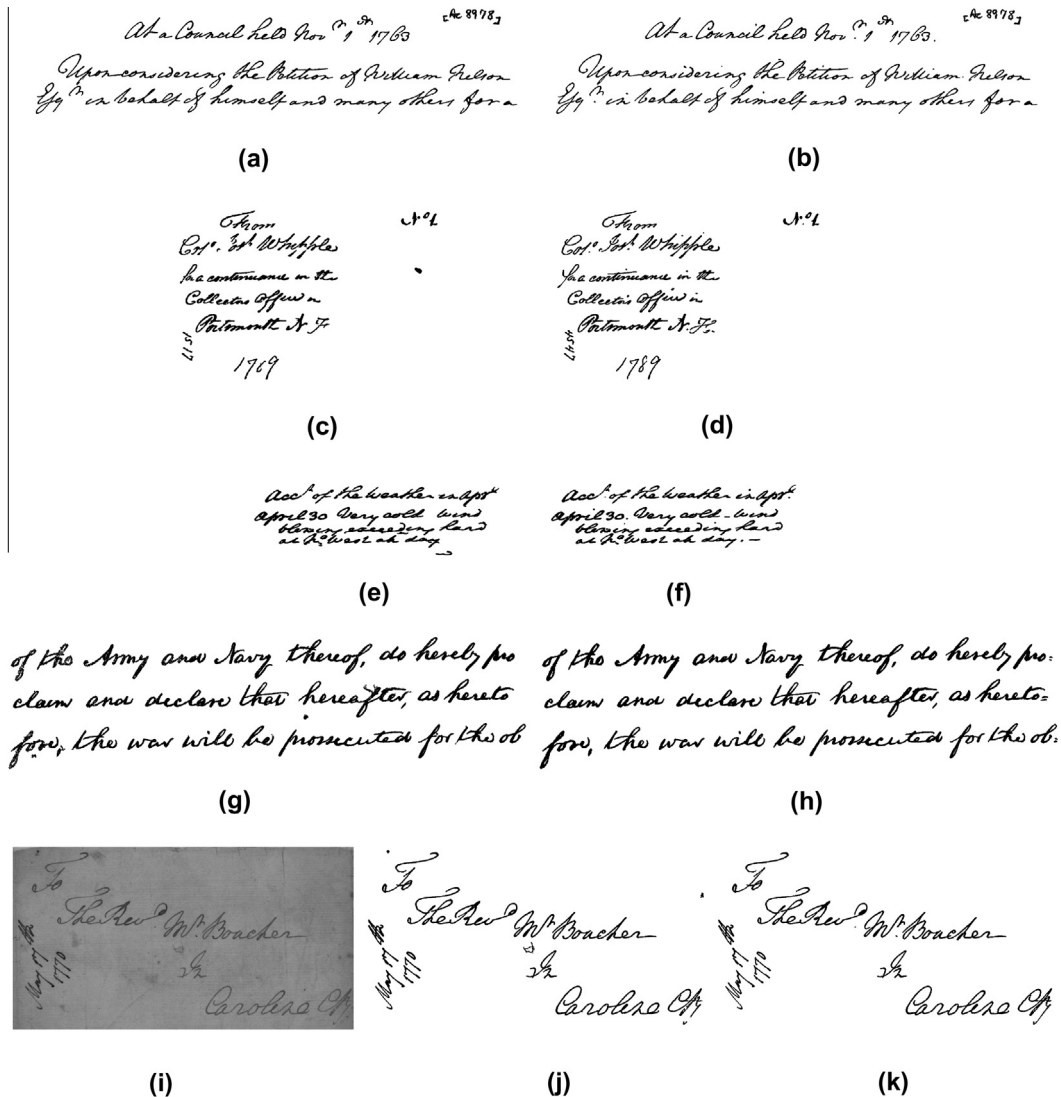 [Ac 8978]
At a Council held Novr 1st 1763
Upon considering the Petition of William Nelson
Esqr in behalf of himself and many others for a
(a)
[Ac 8978]
At a Council held Novr. 1st 1763.
Upon considering the Petition of William Nelson
Esqr. in behalf of himself and many others for a
(b)
From
No 1
Colo. Josh Whipple
for a continuance in the
Collectors Office in
Portsmouth N. H
1769
(c)
From
No. 1
Colo. Josh. Whipple
for a continuance in the
Collectors Office in
Portsmouth N. H.
1789
(d)
Acct of the Weather in Aprl
April 30 Very cold wind
blowing exceeding hard
at No West all day
(e)
Acct. of the Weather in Aprl.
April 30. Very cold - wind
blowing exceeding hard
at No West all day. —
(f)
of the Army and Navy thereof, do hereby pro
claim and declare that hereafter, as hereto
fore, the war will be prossecuted for the ob
(g)
of the Army and Navy thereof, do hereby pro=
claim and declare that hereafter, as hereto=
fore, the war will be prossecuted for the ob=
(h)
To
The Revd Mr. Boucher
In
Caroline Cty
May 17th
1770
(i)
To
The Revd Mr. Boucher
In
Caroline Cty
May 17th
1770
(j)
To
The Revd Mr. Boucher
In
Caroline Cty
May 17th
1770
(k)